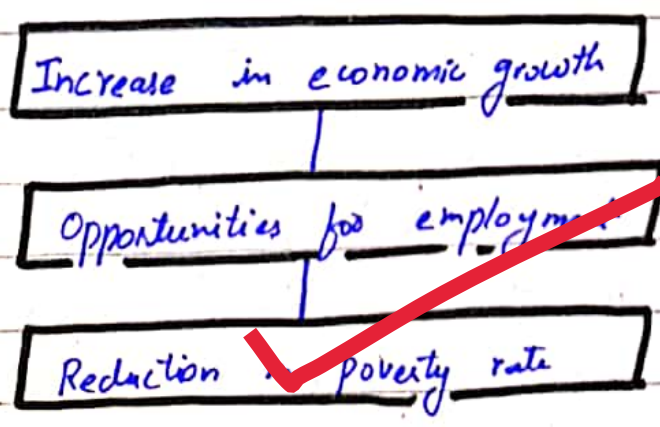 Increase in economic growth
Opportunities for employment
Reduction in poverty rate